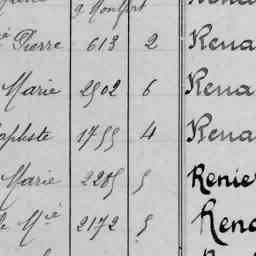 à Monfort
Pierre 613 2 Rena
Marie 2902 6 Rena
aptiste 1755 4 Rena
Marie 2285 5 Renie
Mié 2172 5 Rena